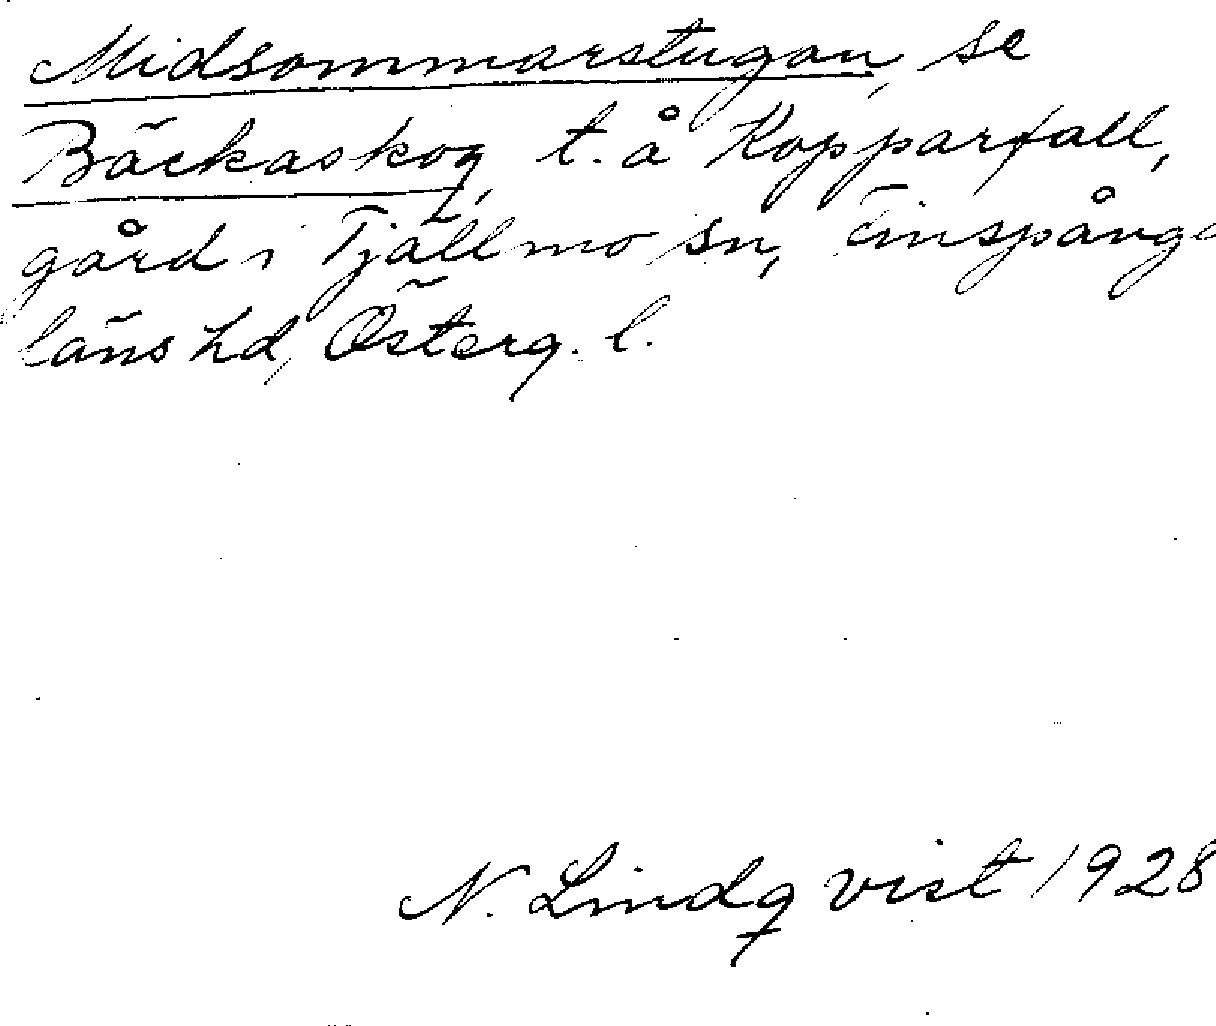 Midsommarstugan, se
Bäckaskog, t. å Kopparfall,
gård i Tjällmo sn, Finspånga
läns hd, Österg. l.
N. Lindqvist 1928